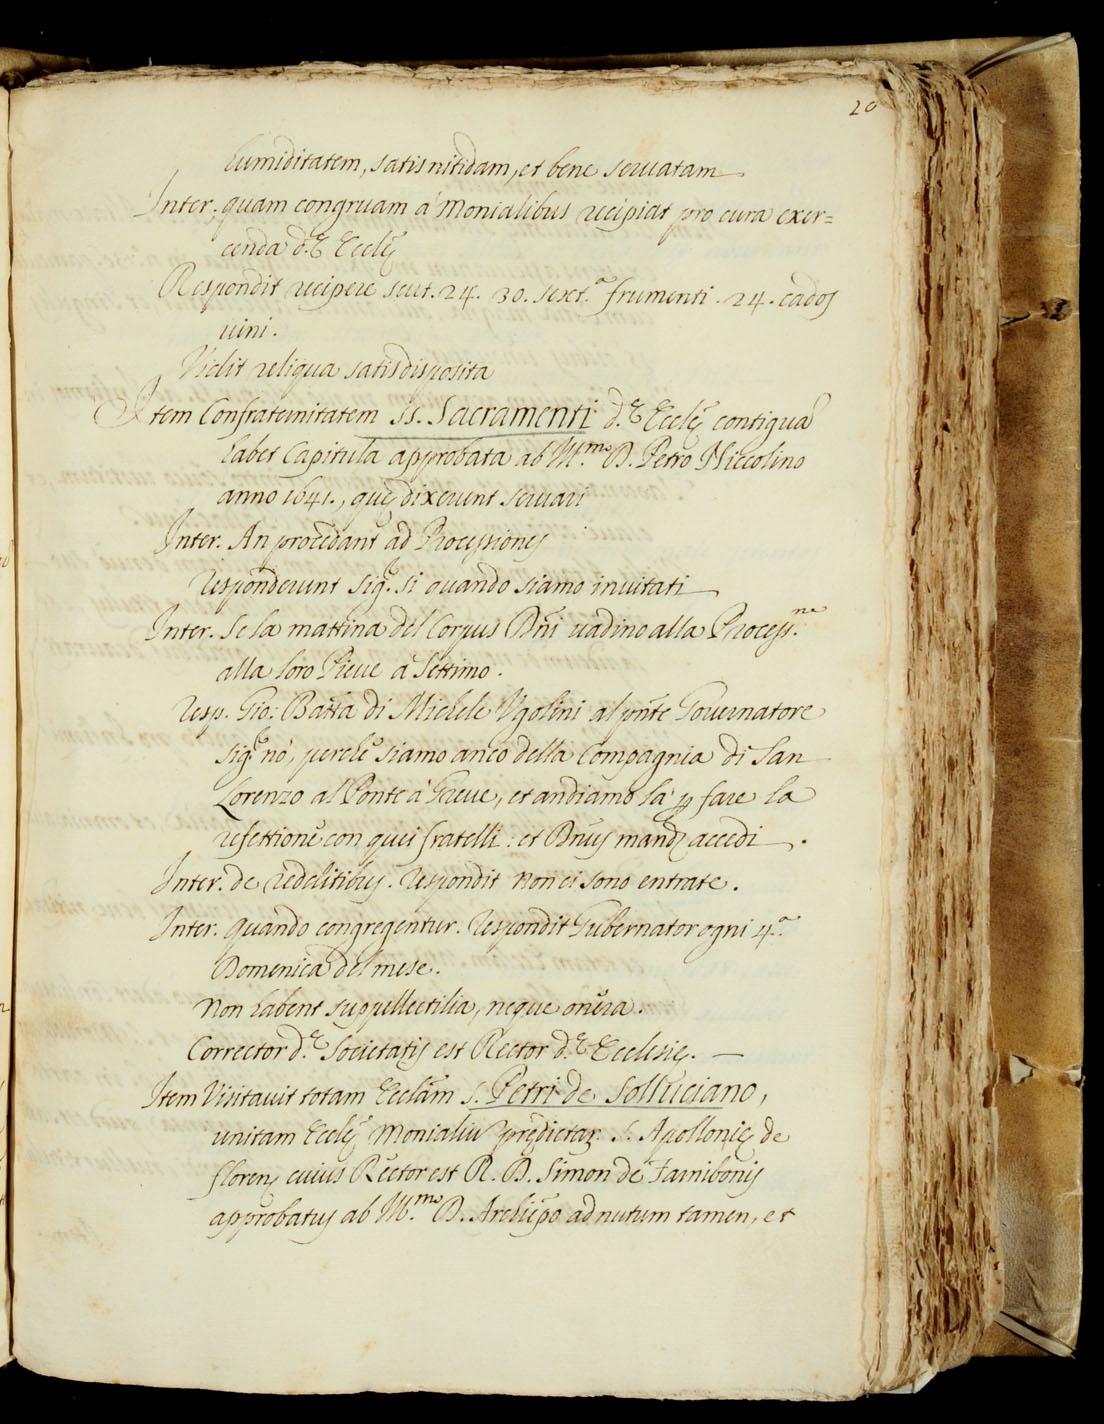 20
humiditatem, satis nitidam, et bene seruatam
Inter. quam congruam á Monialibus recipiat pro cura exer=
cenda d.ę Ecclę
Respondit recipere scut. 24. 30. sext.ª frumenti. 24. cados
uini.
Vidit reliqua satis disposita
Item Confraternitatem SS. Sacramenti d.ę Ecclę contiguã
habet Capitula approbata ab Ill.mo D. Petro Niccolino
anno 1641., quę dixerunt seruari
Inter. An procedant ad Processiones
responderunt sig.e si quando siamo inuitati
Inter. Se la mattina del Corpus Dñi uadino alla Process.ne
alla loro Pieue á Settimo.
resp. Gio: Batta di Michele Vgolini al pñte Gouernatore
sig.e nó, perche siamo anco della Compagnia di San
Lorenzo al Ponte á Greue, et andiamo lá p fare la
refettione con quei fratelli: et Dñus mand. accedi.
Inter. de redditibus. respondit non ci sono entrate.
Inter. quando congregentur. respondit Gubernator ogni 4.ª
Domenica del mese.
non habent suppellectilia, neque onera.
Corrector d.ę Societatis est Rector d.ę Ecclesię.
Item Visitauit totam Ecclãm S. Petri de Solliciano,
unitam Ecclę Monialiũ prędictar. S. Apollonię de
floren. cuius Rector est R. D. Simon de Fainibonis
approbatus ab Ill.mo D. Archiepo ad nutum tamen, et